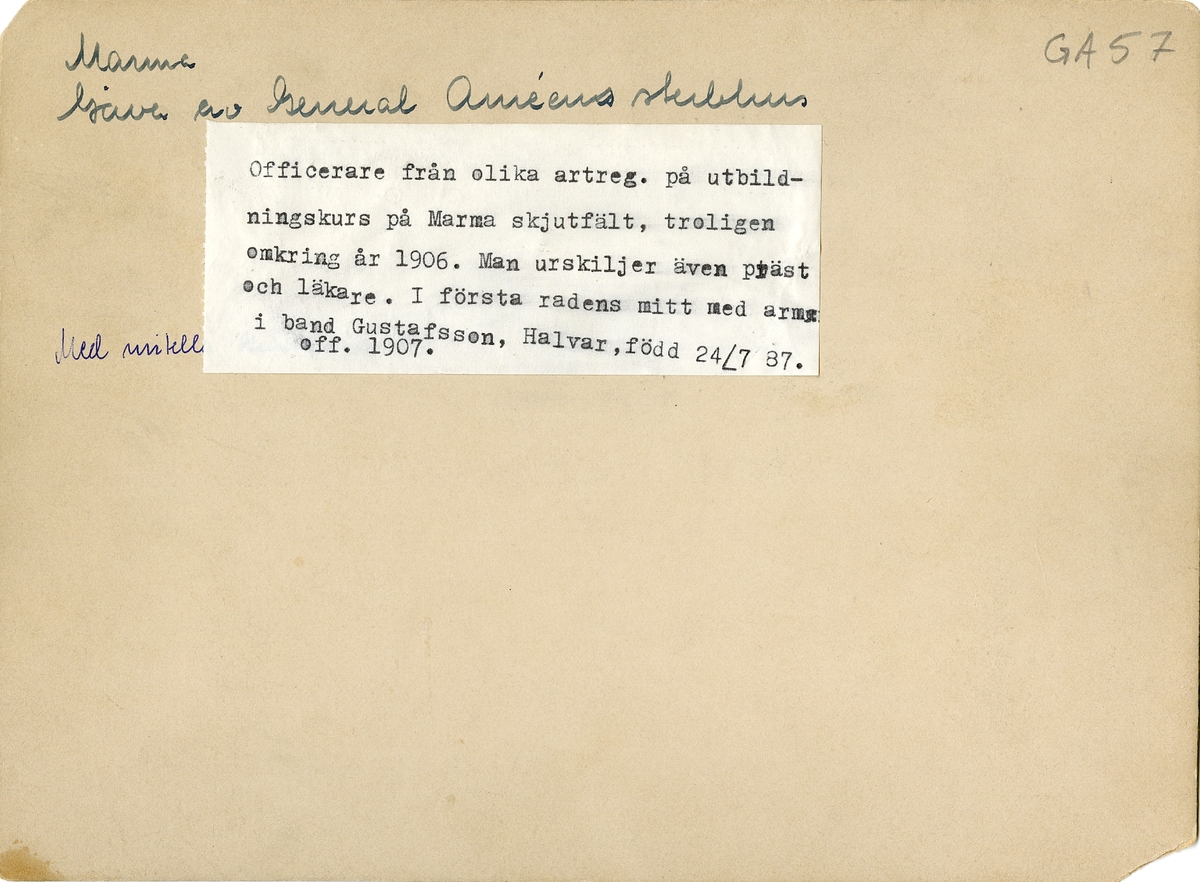 GA 57
Marma
Gåva av General Améens sterbhus
Officerare från olika artreg. på utbild-
ningskurs på Marma skjutfält, troligen
omkring år 1906. Man urskiljer även präst
och läkare. I första radens mitt med armen
i band Gustafsson, Halvar,född 24/7 87.
off. 1907.
Med mitell